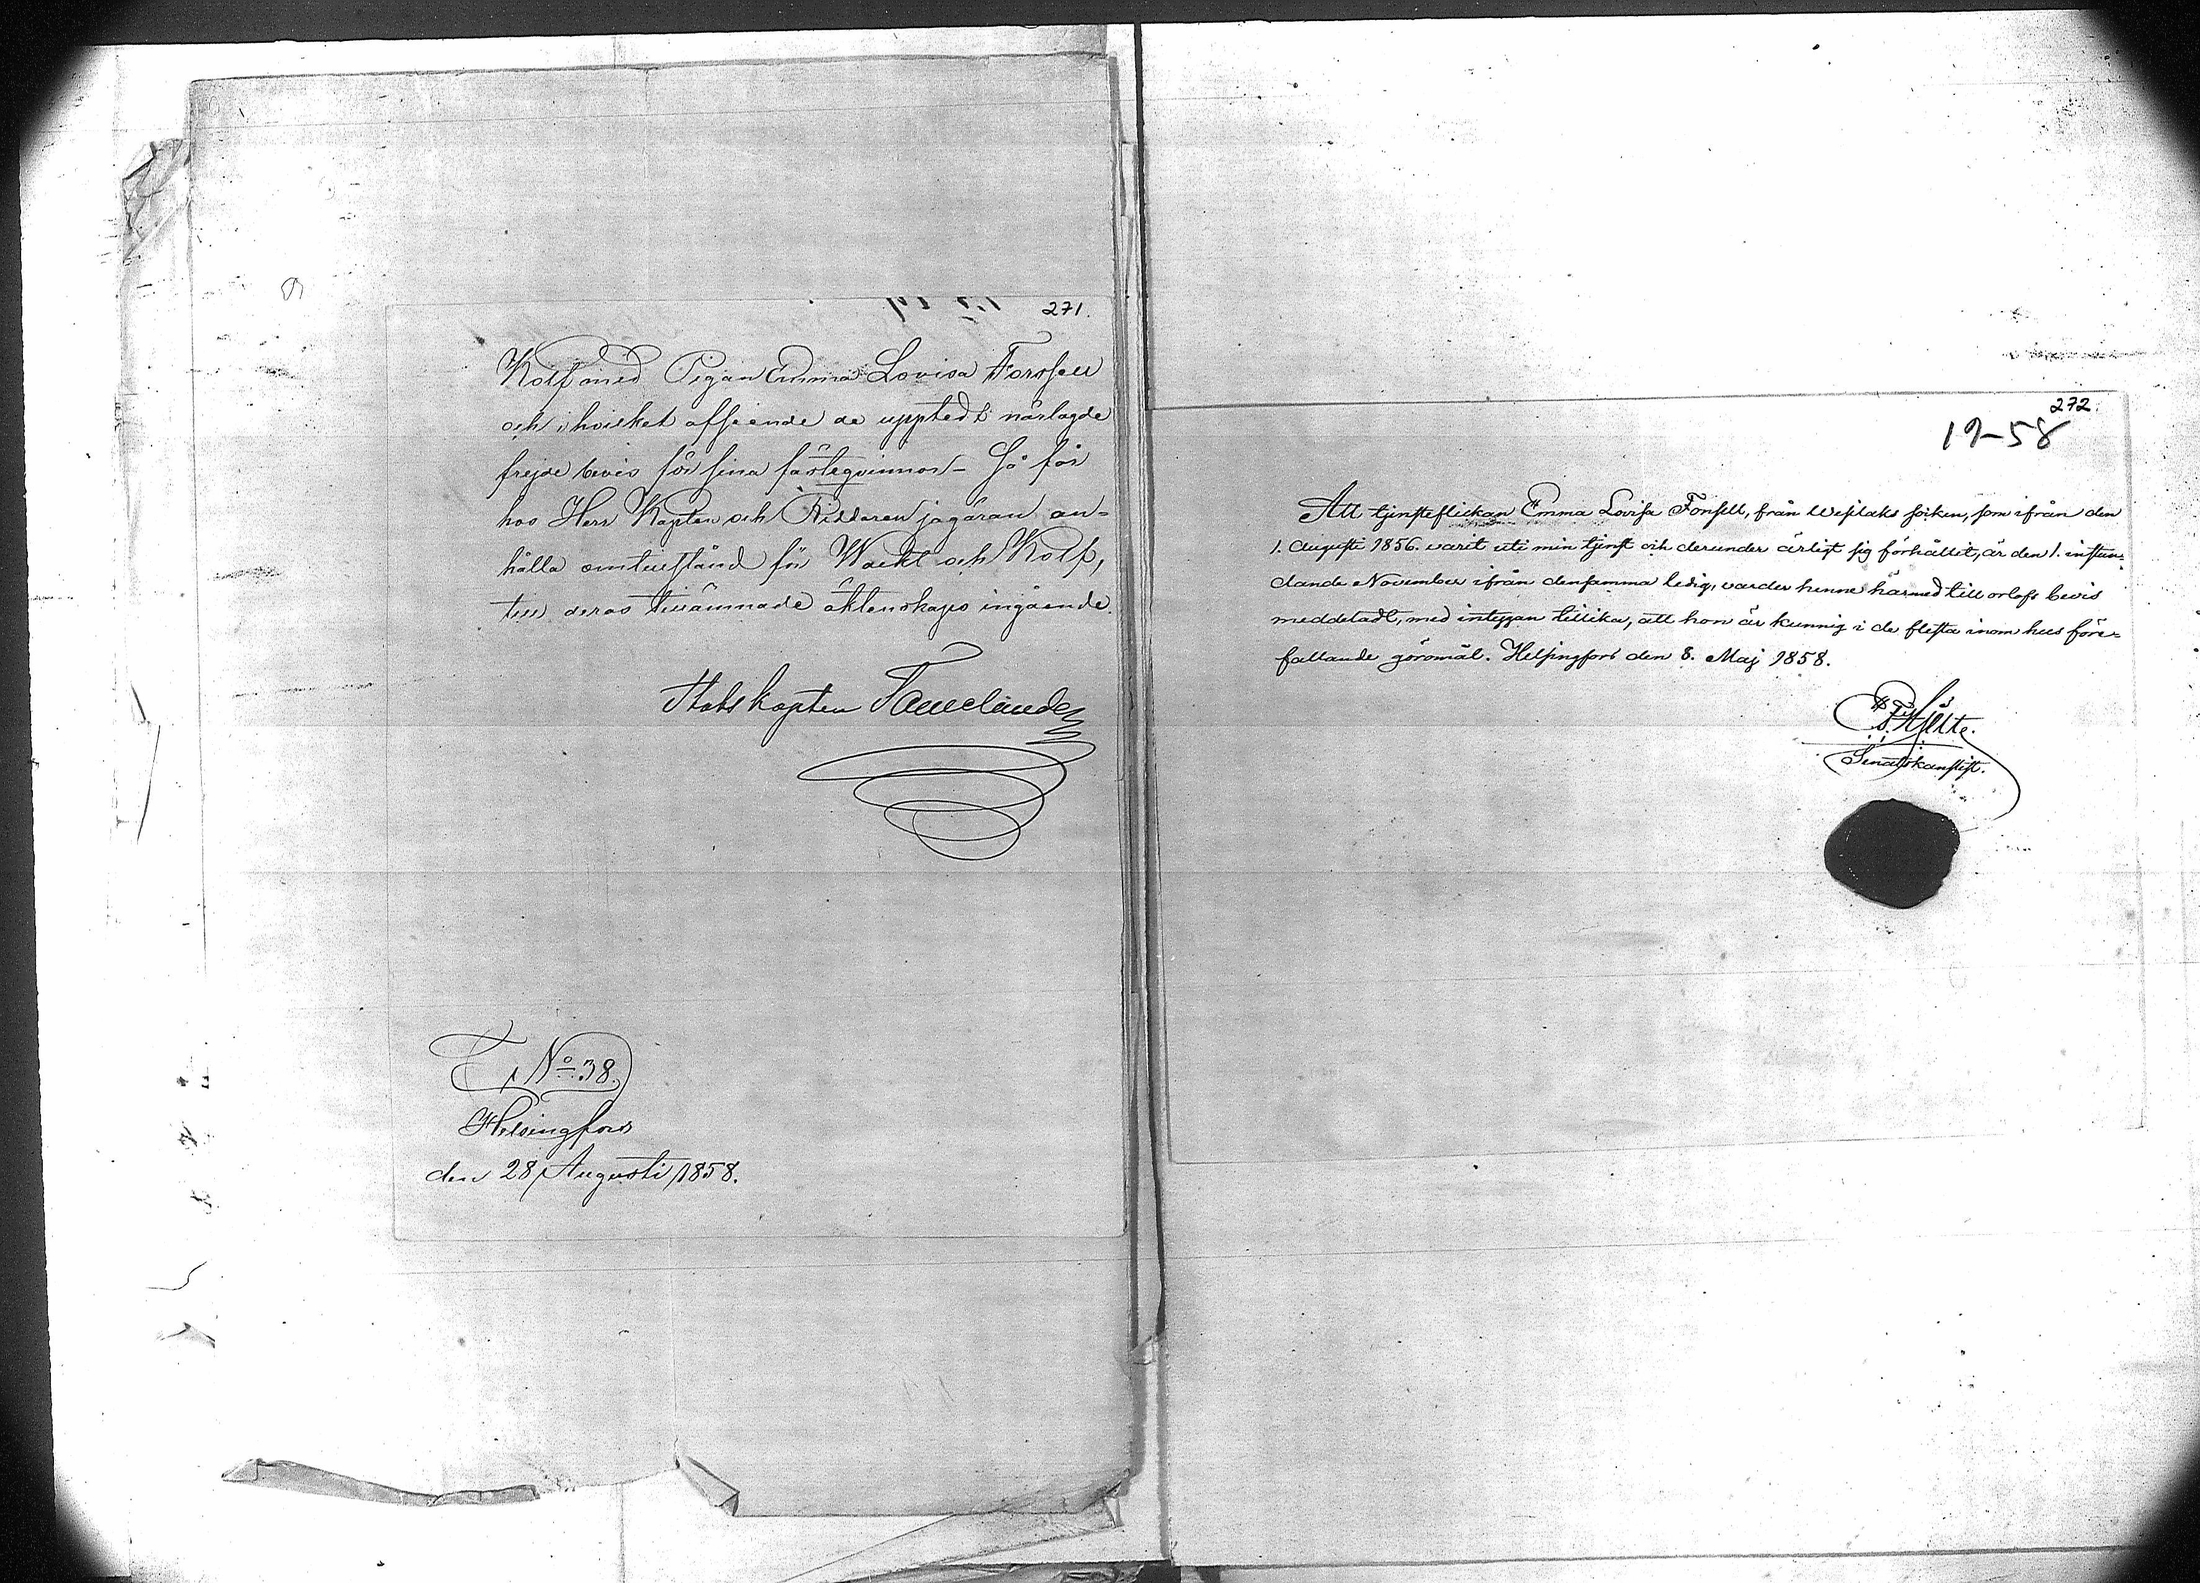 271.
Rolf med Pigan Emma Lovisa Forssell
och i hvilket afseende de upptedt närlagde
frejde bevis för sina fästeqvinnor – Så får
hos Herr Kapten och Riddaren jag äran an=
hålla om tillstånd för Wackt och Rolf,
till deras tillämnade äktenskaps ingående.
Stabskapten
No 38.
Helsingfors
den 28 Augusti 1858.
272.
19–58
Att tjensteflickan Emma Lovisa Forssell, från Westlaks socken, som ifrån den
1. Augusti 1856. varit uti min tjenst och derunder ärligt sig förhållit, är den 1. instun=
dande November ifrån densamma ledig, varder henne härmed till orlofs bevis
meddeladt, med intygan tillika, att hon är kunnig i de flesta inom hus före=
fallande göromål. Helsingfors den 8. Maj 1858.
Senatskanslist.